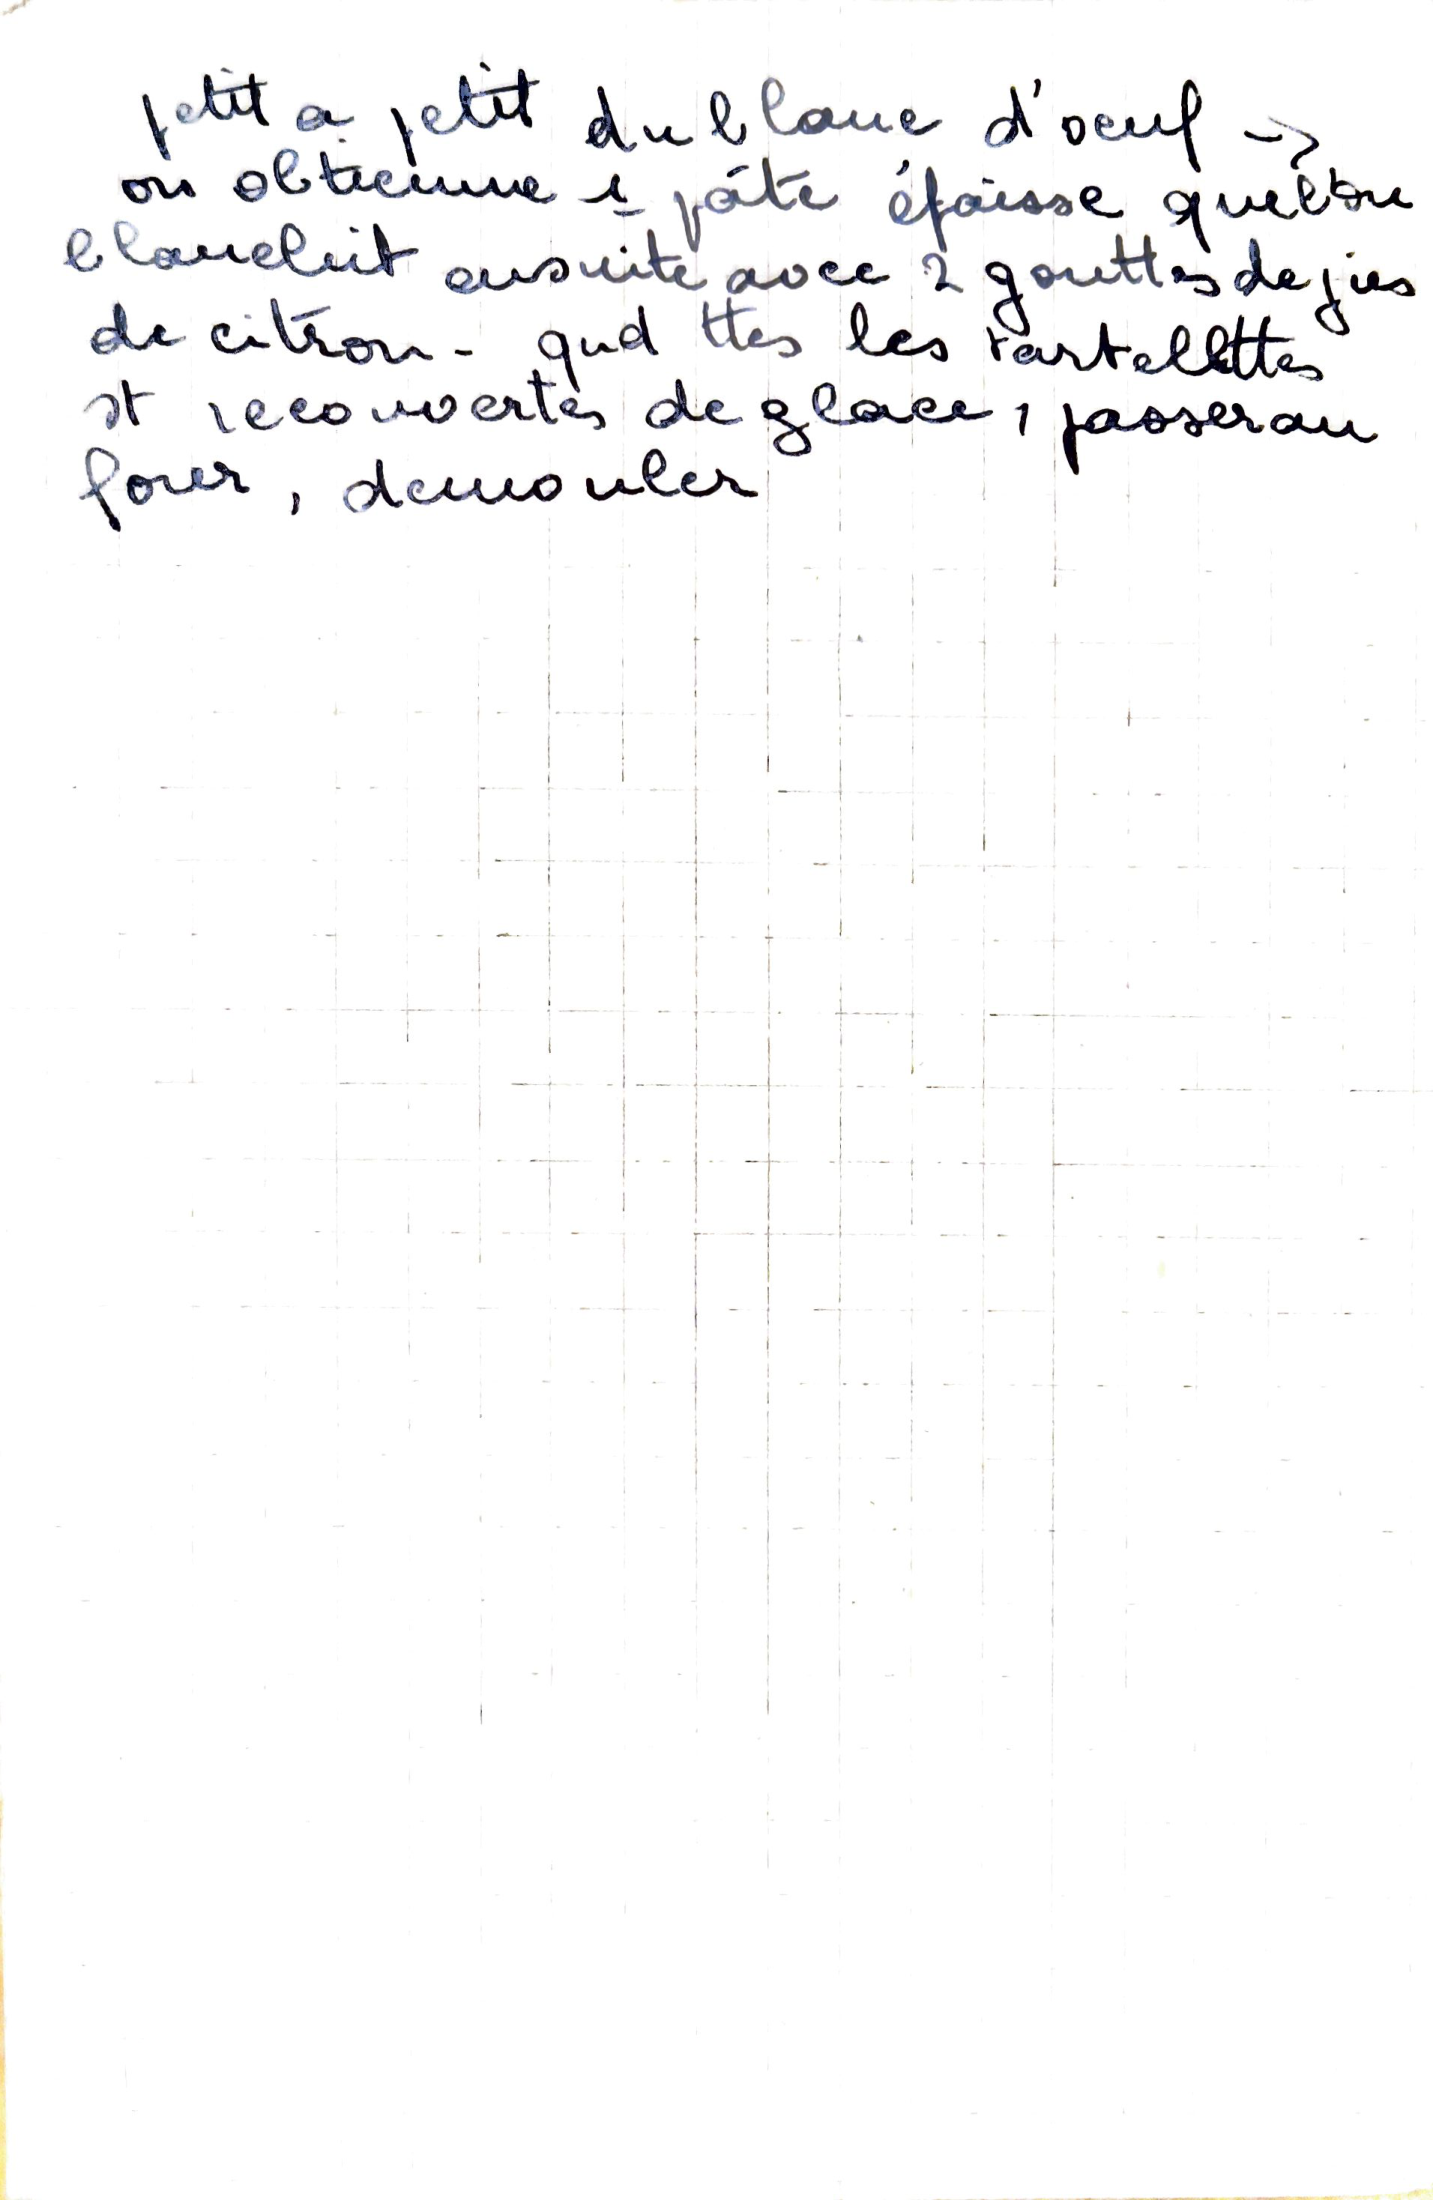 petit a petit du blanc d'oeuf ->
on obtienne 1 pâte épaisse que l'on
blanchit ensuite avec 2 gouttes de jus
de citron - qud ttes les tartelettes
st recouvertes de glace, passer au
four, demouler